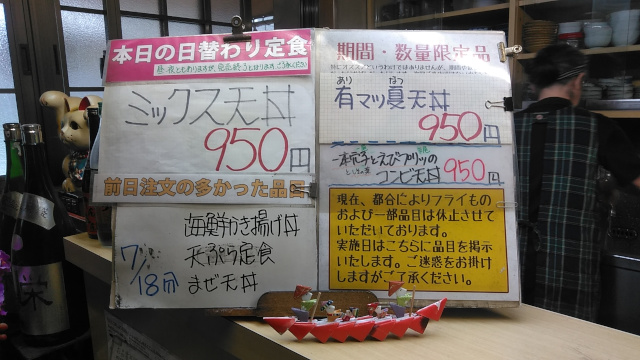 本日の日替わり定食
ミックス天丼
950円
前日注文の多かった品目
海鮮かき揚げ丼
天ぷら定食
まぜ天丼
7/18㈪
期間・数量限定品
あり なつ
有マッ夏天丼
950円
一本穴子とえびプリッの
コンビ天丼 950円
現在、都合によりフライもの
および一部品目は休止させて
いただいております。
実施日はこちらに品目を掲示
いたします。ご迷惑をお掛け
しますがご了承ください。
栄